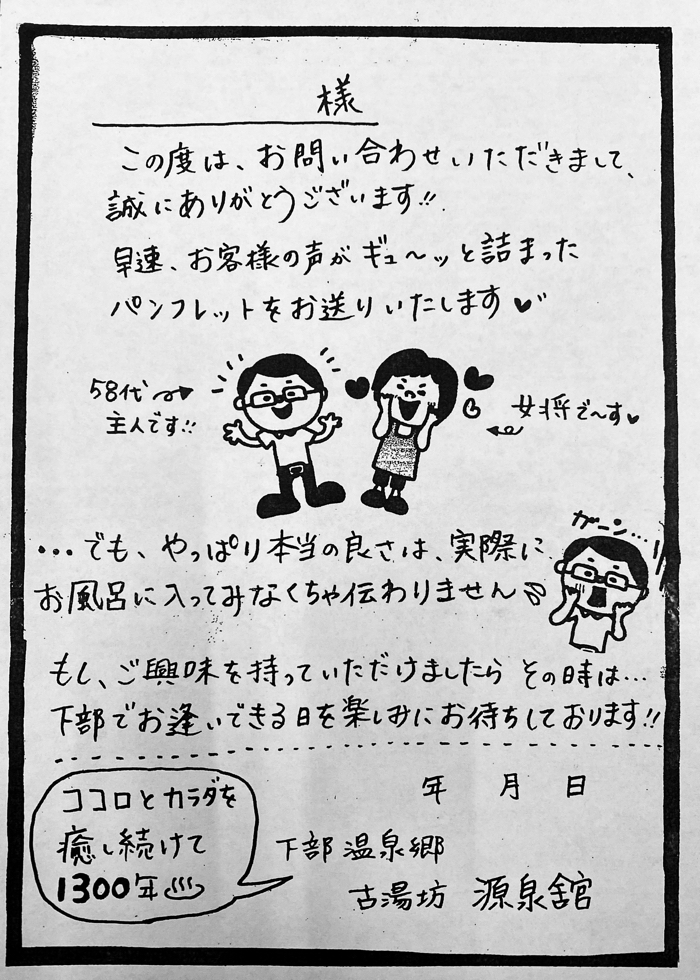 様
この度は、お問い合わせいただきまして、
誠にありがとうございます!!
早速、お客様の声がギュ〜ッと詰まった
パンフレットをお送りいたします♥
58代
主人です!!
女将で〜す♥
ガーン…
…でも、やっぱり本当の良さは、実際に
お風呂に入ってみなくちゃ伝わりません
もし、ご興味を持っていただけましたら その時は…
下部でお逢いできる日を楽しみにお待ちしております!!
年 月 日
ココロとカラダを
癒し続けて
1300年♨
下部温泉郷
古湯坊 源泉舘